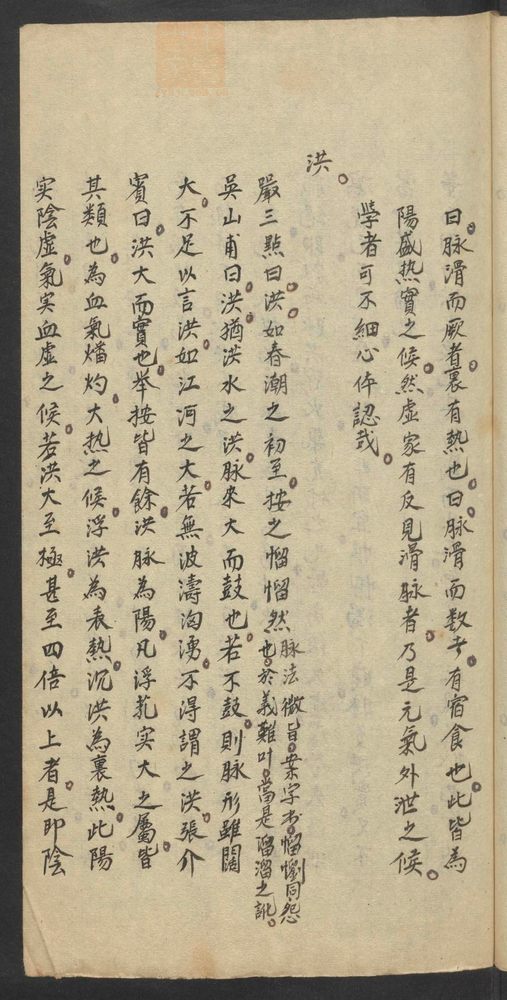 曰脉滑而厥者裏有熱也曰脉滑而数者有宿食也此皆為
陽盛热實之候然虛家有反見滑脉者乃是元氣外泄之候
學者可不細心体認哉
洪
嚴三點曰洪如春潮之初至按之慆慆然
脉法微旨案字书慆懰同怨
也於義難叶當是滔滔之訛
吳山甫曰洪猶洪水之洪脉来大而鼓也若不鼓則脉形雖闊
大不足以言洪如江河之大若無波濤洶湧不得謂之洪張介
賓曰洪大而實也举按皆有餘洪脉為陽凡浮芤实大之屬皆
其類也為血氣燔灼大热之候浮洪為表熱沉洪為裏熱此陽
实陰虛氣实血虛之候若洪大至極甚至四倍以上者是即陰